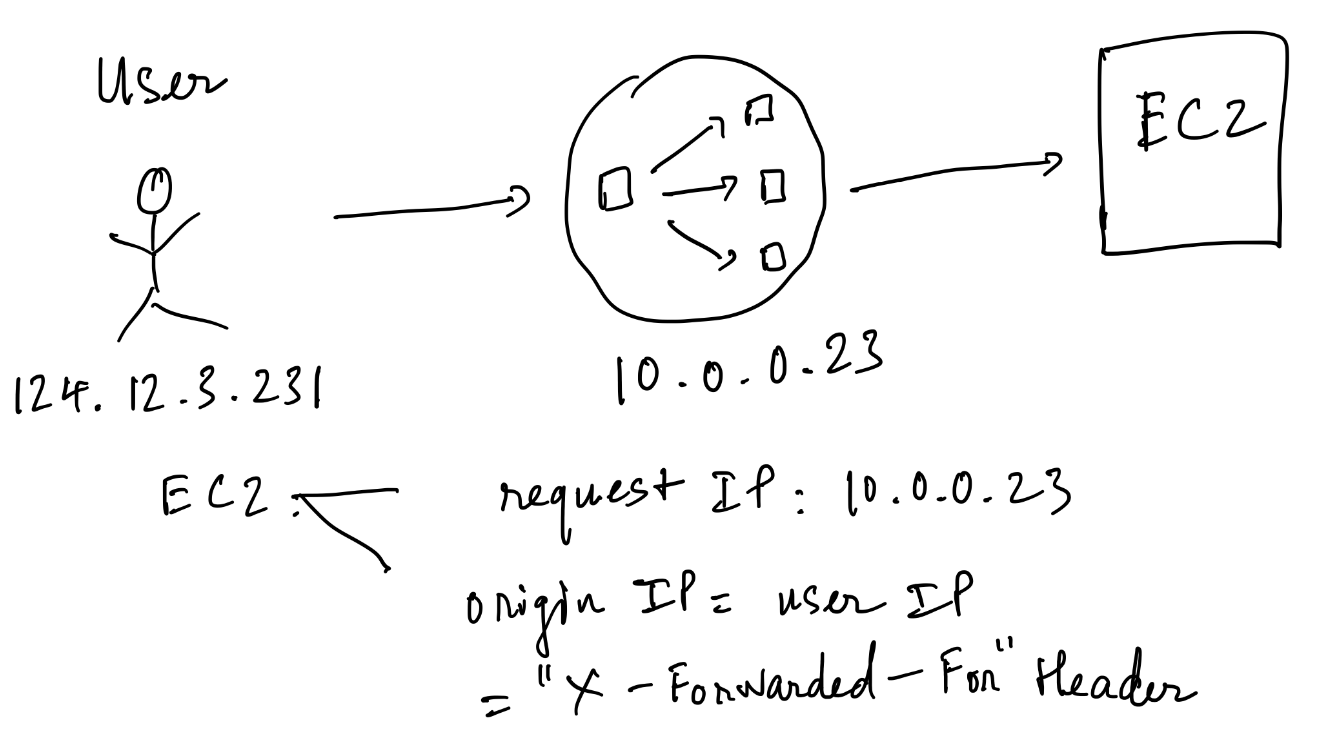 User
EC2
124.12.3.231
10.0.0.23
EC2:
request IP: 10.0.0.23
origin IP = user IP
= "X-Forwarded-For" Header